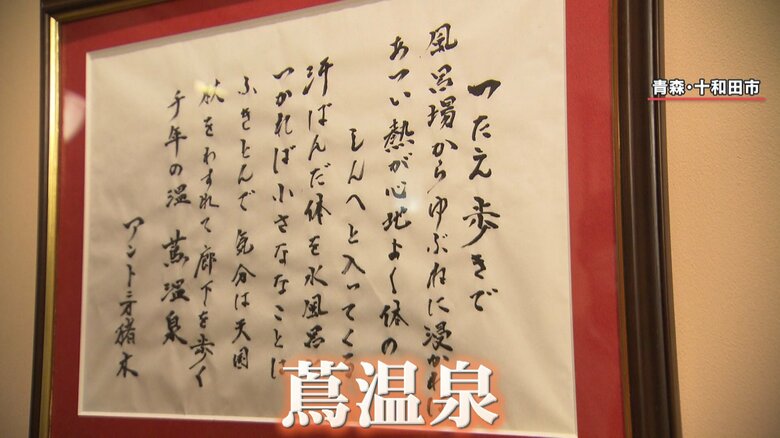 青森・十和田市
つたえ歩きで
風呂場からゆぶねに浸かれば
あつい熱が心地よく体の
しんへと入ってくる
汗ばんだ体を水風呂
つかれば小さななことは
ふきとんで 気分は天国
欲をわすれて廊下を歩く
千年の温 蔦温泉
アントニオ猪木
蔦温泉